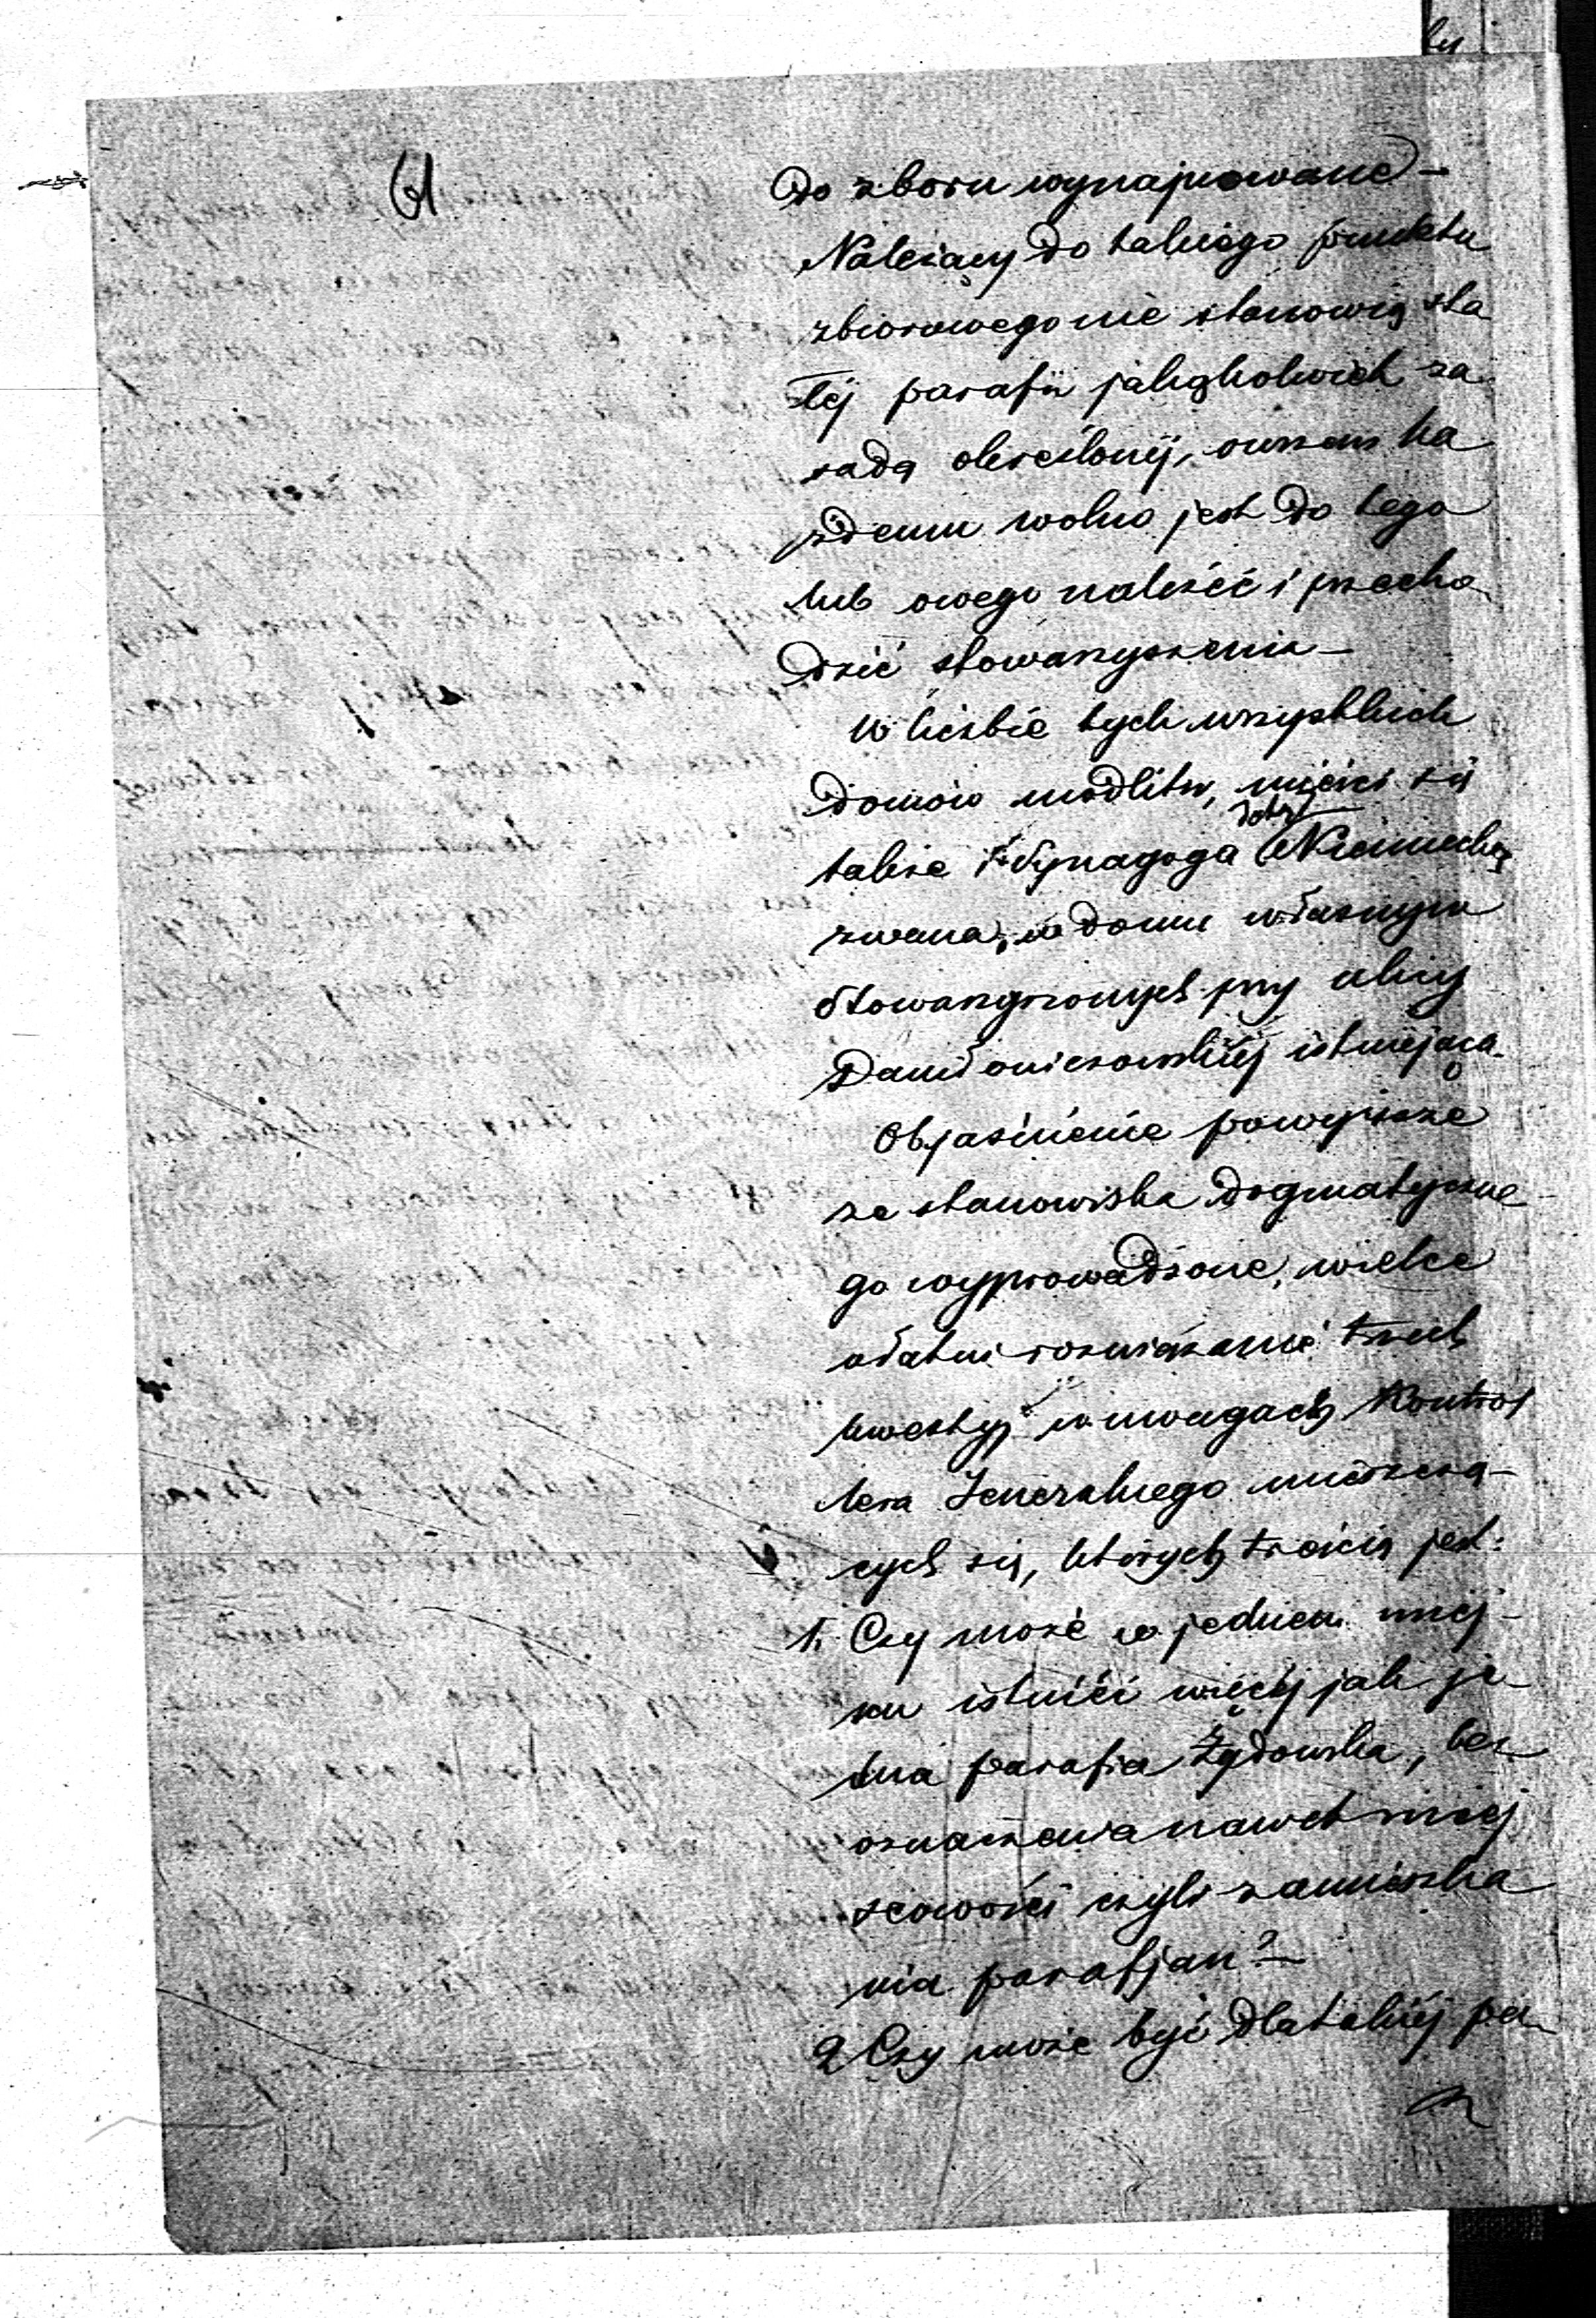 61
do zboru wynajmowane –
Należący do takiego punktu
zbiorowego nie stanowią sta
łéj parafii jakąkolwiek za
sadą określonéj, owszem ka
żdemu wolno jest do tego
lub owego należéć i przecho
dzić stowarzyszenia –
W liczbie tych wszystkich
domów modlitw, mieści się
także i Synagoga dotąd Niemiecką
zwana, w domu własnym
Stowarzyszonych przy ulicy
Daniłowiczowskiéj istniejąca.
Objaśnienie powyższe
ze stanowiska dogmatyczne
go wyprowadzone, wielce
ułatwi rozwiązanie trzech
kwestyj w uwagach Kontrol
lera Jeneralnego mieszczą–
cych się, których treścią jest:
1. Czy może w jednem miej–
scu istniéć więcéj jak je–
dna parafia Żydowska, bez
oznaczenia nawet miej
scowości czyli zamieszka
nia parafjan? –
2 Czy może być dla takiéj pa–